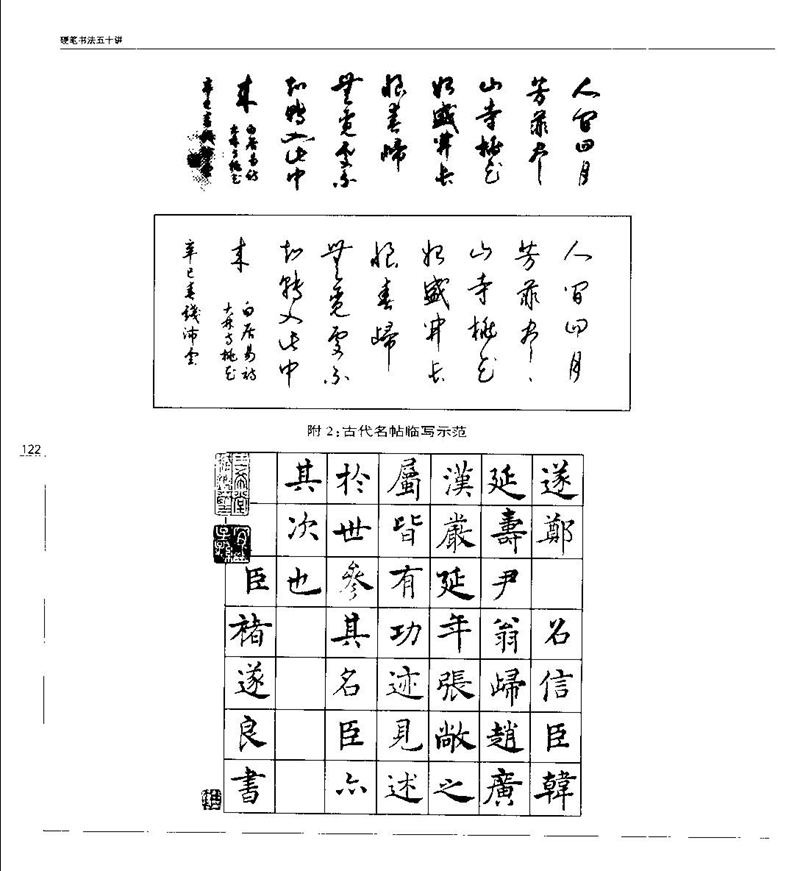 硬笔书法五十讲
人間四月
芳菲尽
山寺桃花
始盛開长
恨春歸
無覓處不
知轉入此中
来
白居易詩
大林寺桃花
辛巳春
人間四月
芳菲尽
山寺桃花
始盛開长
恨春歸
無覓處不
知轉入此中
来
白居易詩
大林寺桃花
辛巳春錢沛雲
附2:古代名帖临写示范
122
遂鄭 名信臣韓
延壽尹翁歸趙廣
漢嚴延年張敞之
屬皆有功迹見述
於世參其名臣亦
其次也
臣褚遂良書